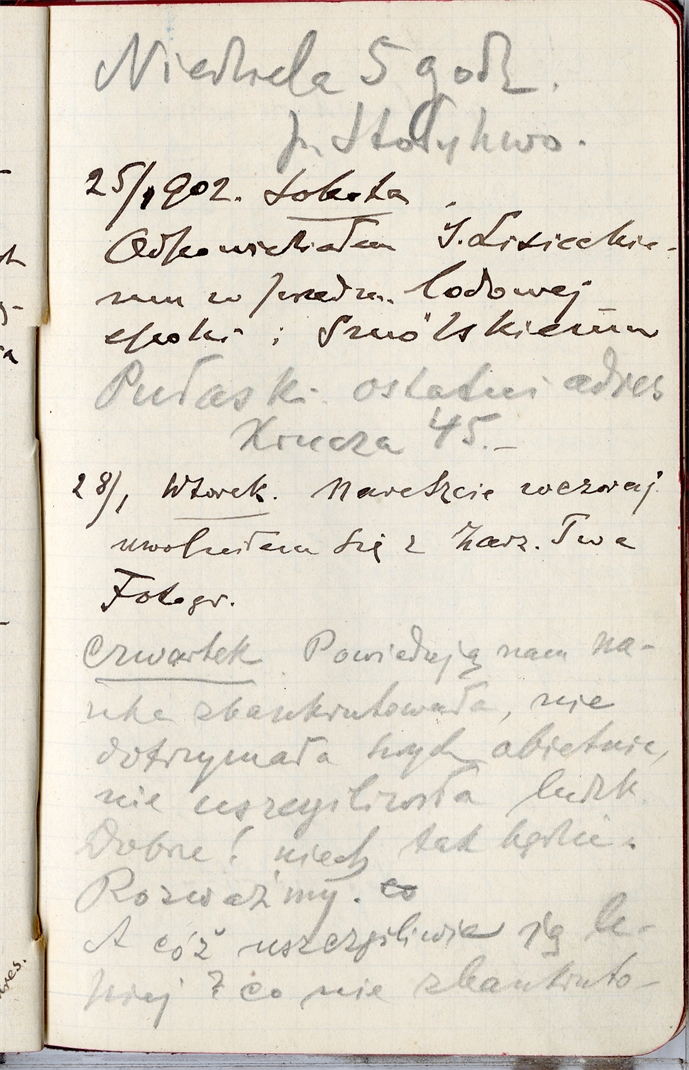 Niedziela 5 godz.
p. Stołyhwo.
25/1 902. Sobota
Odpowiedziałem J. Lisieckie-
mu w przedm. lodowej
epoki i Smólskiemu
Pułaski ostatni adres
Krucza 45.–
28/1 Wtorek. Nareszcie wczoraj
uwolniłem się z Zarz. Twa
Fotogr.
Czwartek Powiedzą nam na-
uka zbankrutowała, nie
dotrzymała swych obietnic,
nie uszczęśliwiła ludzk.
Dobrze! niech tak będzie.
Rozważmy. co
A cóż uszczęśliwia ją le-
piej? co nie zbankruto-